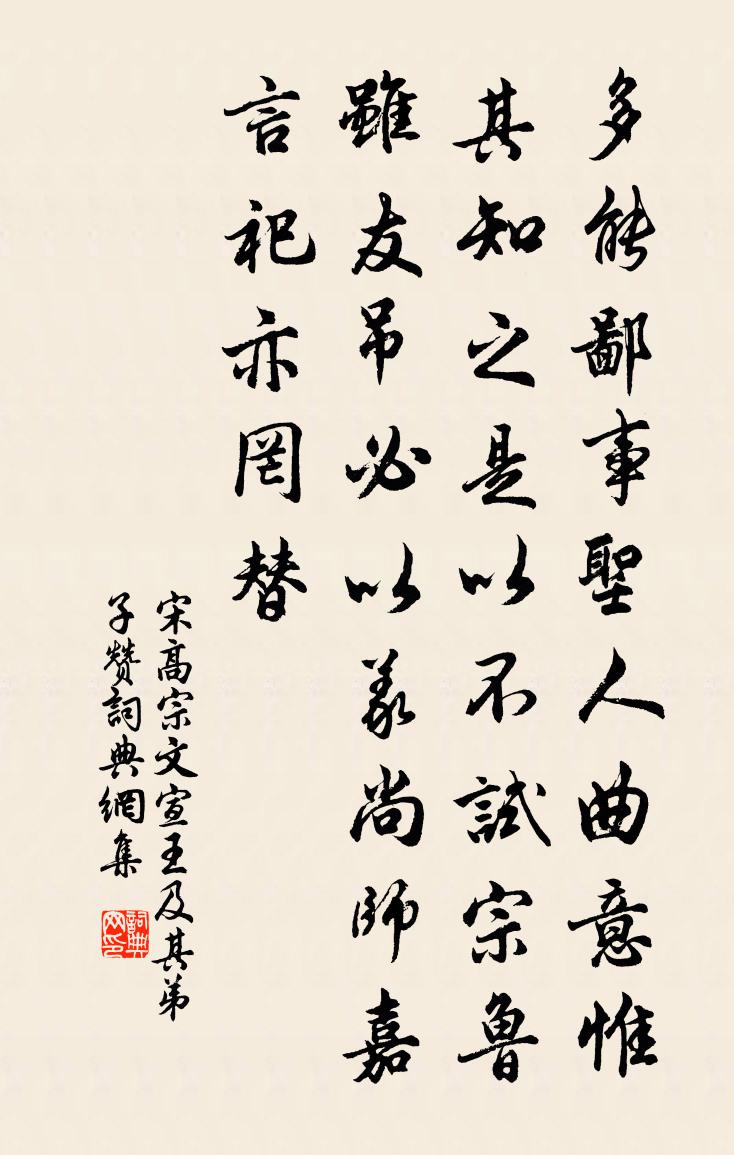 多能鄙事聖人曲意惟
其知之是以不試宗魯
雖友吊必以義尚師嘉
言祀亦罔替
宋高宗文宣王及其弟
子贊詞典網集
詞典网印